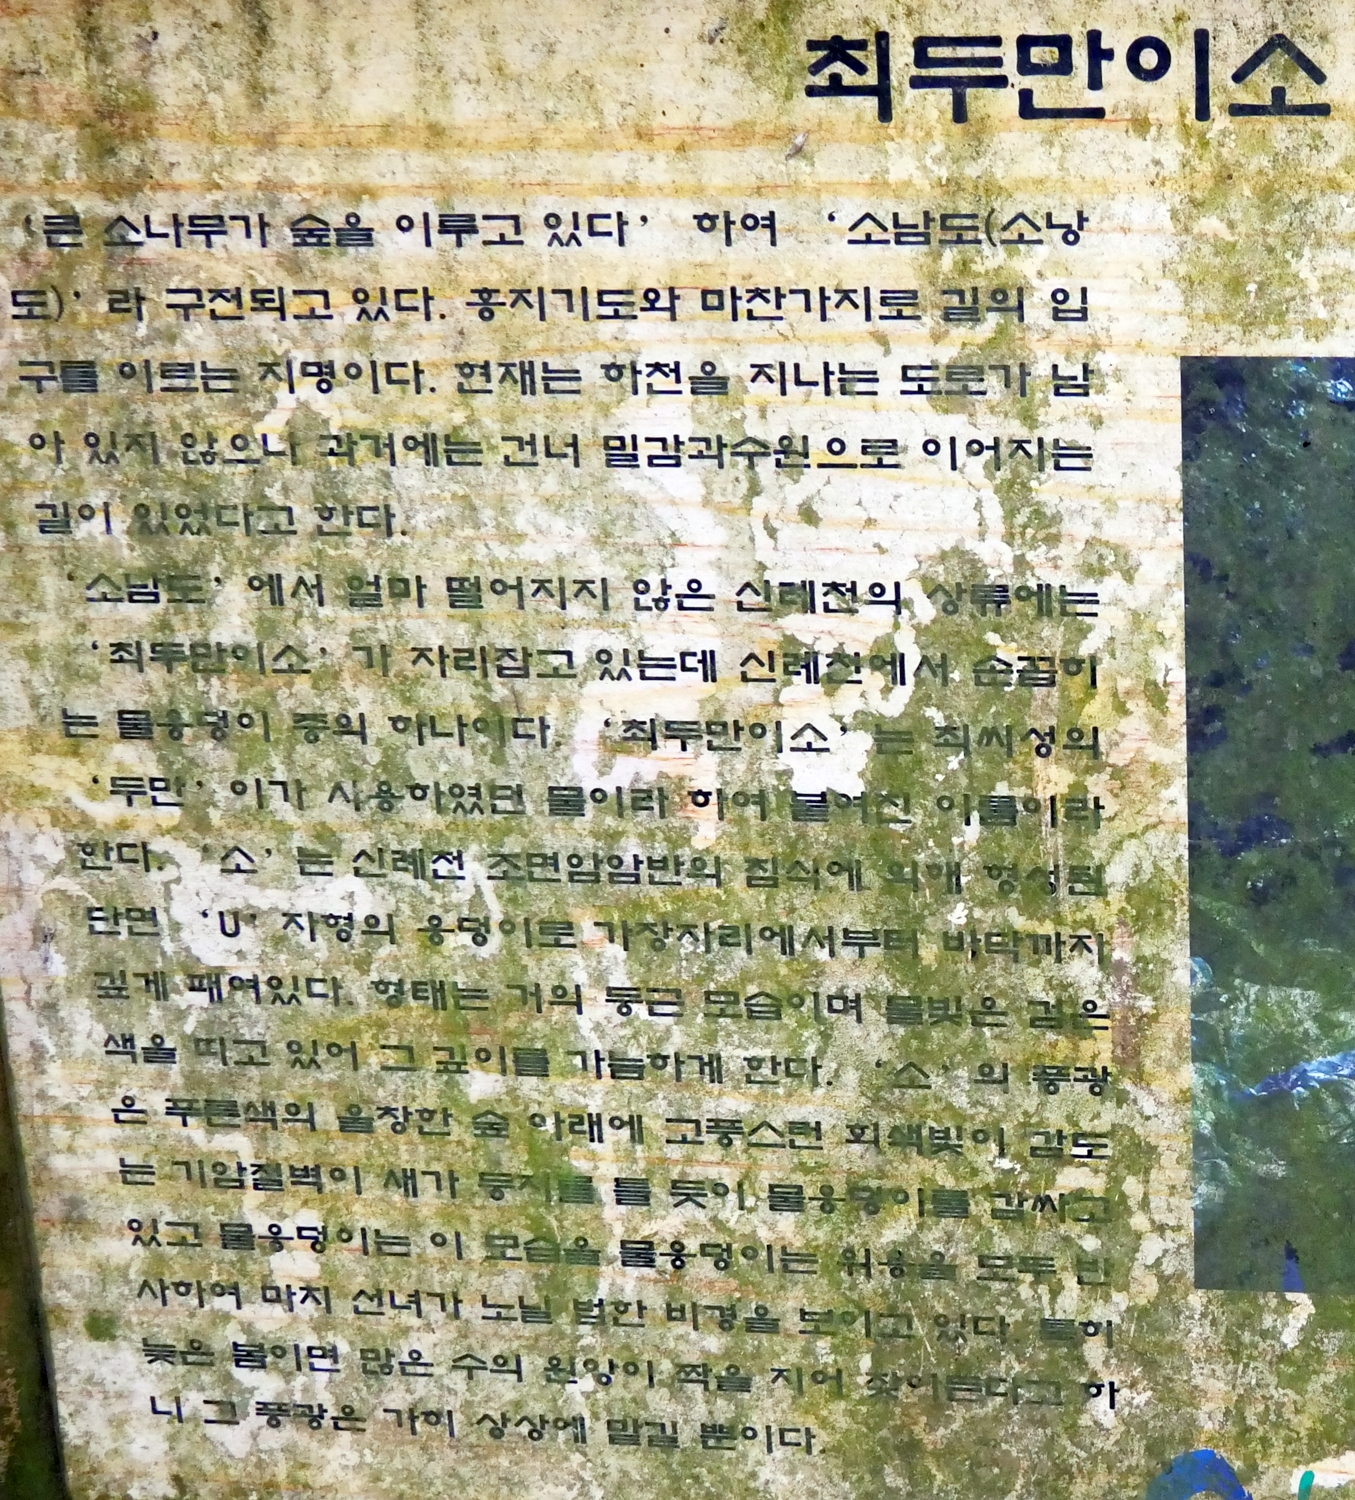 최두만이소
‘큰 소나무가 숲을 이루고 있다’ 하여 ‘소남도(소낭
도)’ 라 구전되고 있다. 홍지기도와 마찬가지로 길의 입
구를 이르는 지명이다. 현재는 하천을 지나는 도로가 남
아 있지 않으나 과거에는 건너 밀감과수원으로 이어지는
길이 있었다고 한다.
‘소남도’ 에서 얼마 떨어지지 않은 신례천의 상류에는
‘최두만이소’ 가 자리잡고 있는데 신례천에서 손꼽히
는 물웅덩이 중의 하나이다. ‘최두만이소’ 는 최씨성의
‘두만’ 이가 사용하였던 물이라 하여 붙여진 이름이라
한다. ‘소’ 는 신례천 조면암암반의 침식에 의해 형성된
단면 ‘U’ 자형의 웅덩이로 가장자리에서부터 바닥까지
깊게 패여있다. 형태는 거의 둥근 모습이며 물빛은 검은
색을 띠고 있어 그 깊이를 가늠하게 한다. ‘소’ 의 풍광
은 푸른색의 울창한 숲 아래에 고풍스런 회색빛이 감도
는 기암절벽이 새가 둥지를 틀 듯이 물웅덩이를 감싸고
있고 물웅덩이는 이 모습을 물웅덩이는 위용을 모두 반
사하여 마치 선녀가 노닐 법한 비경을 보이고 있다. 특히
늦은 봄이면 많은 수의 원앙이 짝을 지어 찾아든다고 하
니 그 풍광은 가히 상상에 맡길 뿐이다.